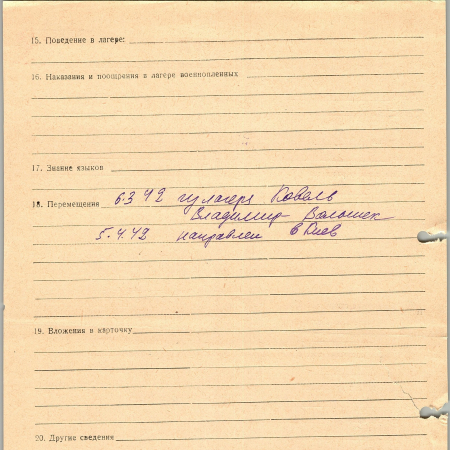 15. Поведение в лагере:
16. Наказания и поощрения в лагере военнопленных
17. Знание языков
18. Перемещения 6.3 42 из лагеря Ковель
Владимир-Волынск
5.4.42 направлен в Киев
19. Вложения в карточку
20. Другие сведения